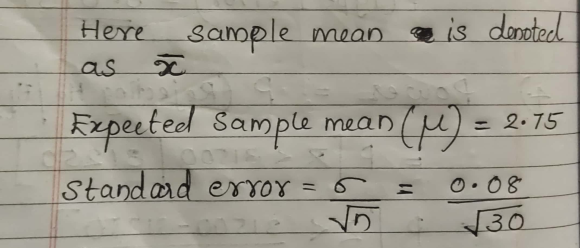 Here sample mean is denoted
as x̄
Expected sample mean (μ) = 2.75
Standard error = σ/√n = 0.08/√30